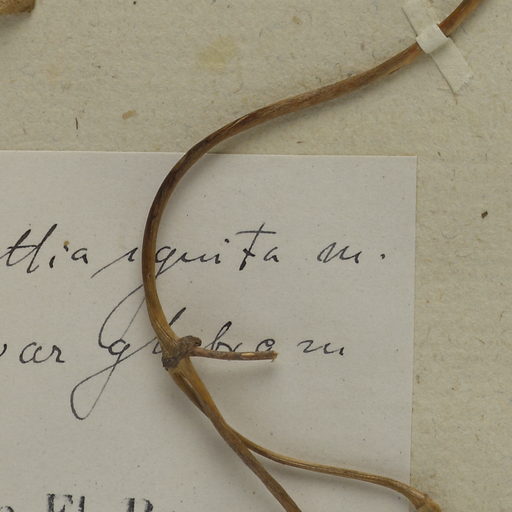 ttia ignita m.
var glabra m
Fl. B